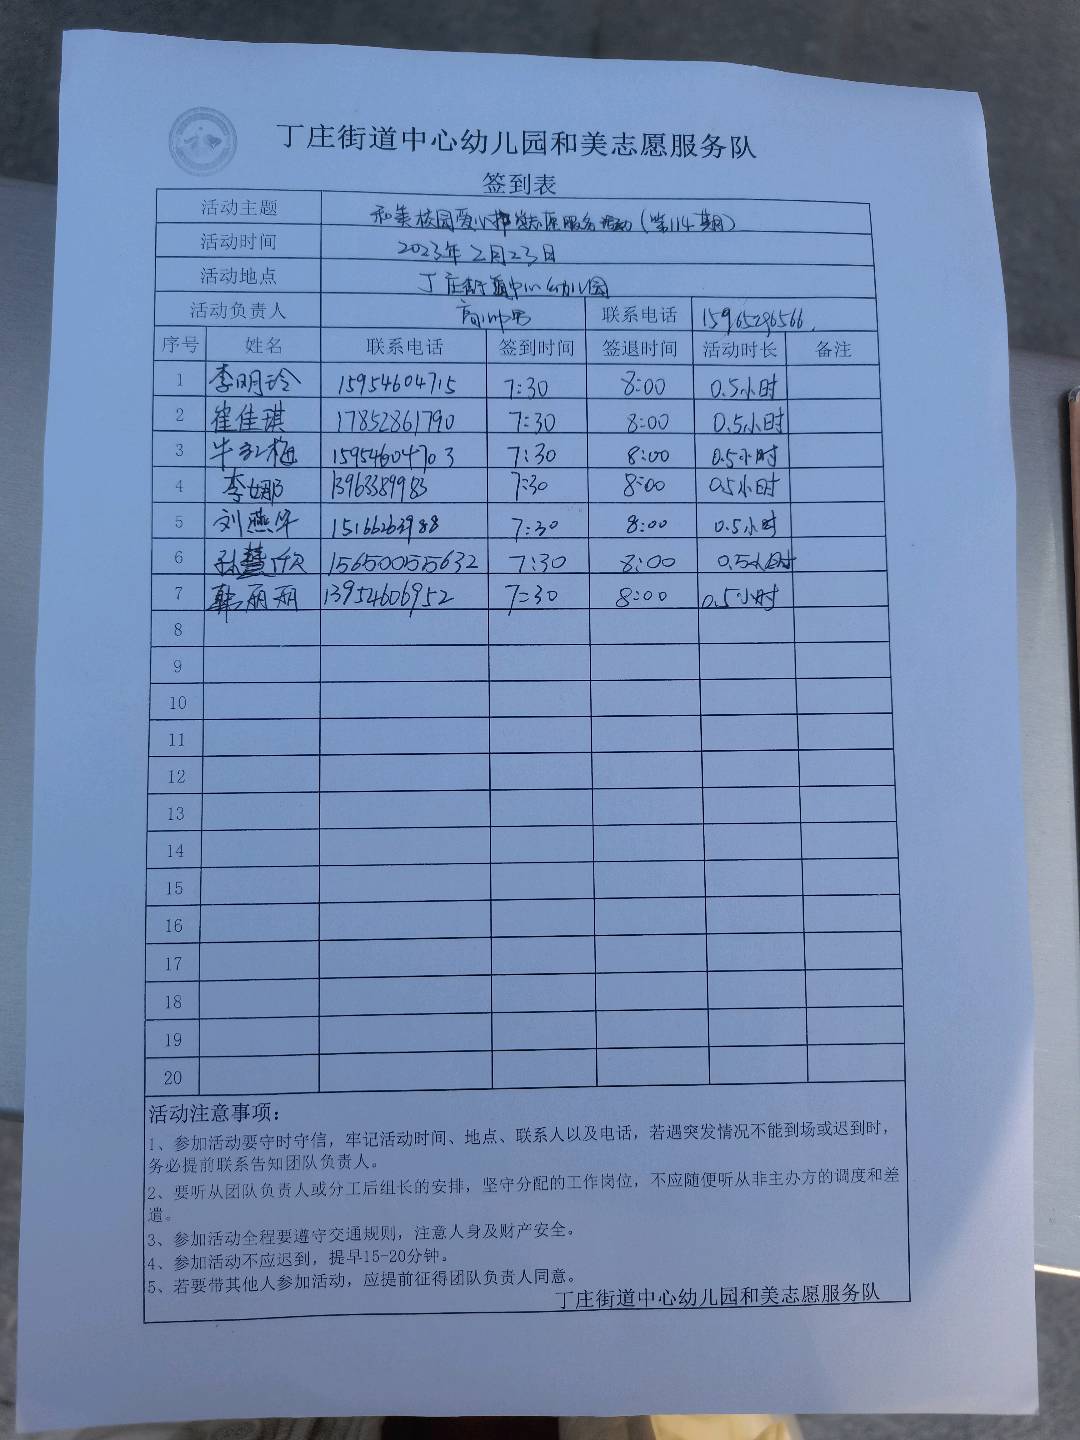 丁庄街道中心幼儿园和美志愿服务队
签到表
活动主题 和美校园爱心护学志愿服务活动(第114期)
活动时间 2023年2月23日
活动地点 丁庄街道中心幼儿园
活动负责人 联系电话 15965296566
序号 姓名 联系电话 签到时间 签退时间 活动时长 备注
1 李明玲 15954604715 7:30 8:00 0.5小时
2 崔佳琪 17852861790 7:30 8:00 0.5小时
3 牛红梅 15954604703 7:30 8:00 0.5小时
4 李娜 13963389983 7:30 8:00 0.5小时
5 刘燕华 15166263988 7:30 8:00 0.5小时
6 孙慧欣 15650055632 7:30 8:00 0.5小时
7 韩丽丽 13954606952 7:30 8:00 0.5小时
8
9
10
11
12
13
14
15
16
17
18
19
20
活动注意事项:
1、参加活动要守时守信,牢记活动时间、地点、联系人以及电话,若遇突发情况不能到场或迟到时,
务必提前联系告知团队负责人。
2、要听从团队负责人或分工后组长的安排,坚守分配的工作岗位,不应随便听从非主办方的调度和差
遣。
3、参加活动全程要遵守交通规则,注意人身及财产安全。
4、参加活动不应迟到,提早15-20分钟。
5、若要带其他人参加活动,应提前征得团队负责人同意。
丁庄街道中心幼儿园和美志愿服务队